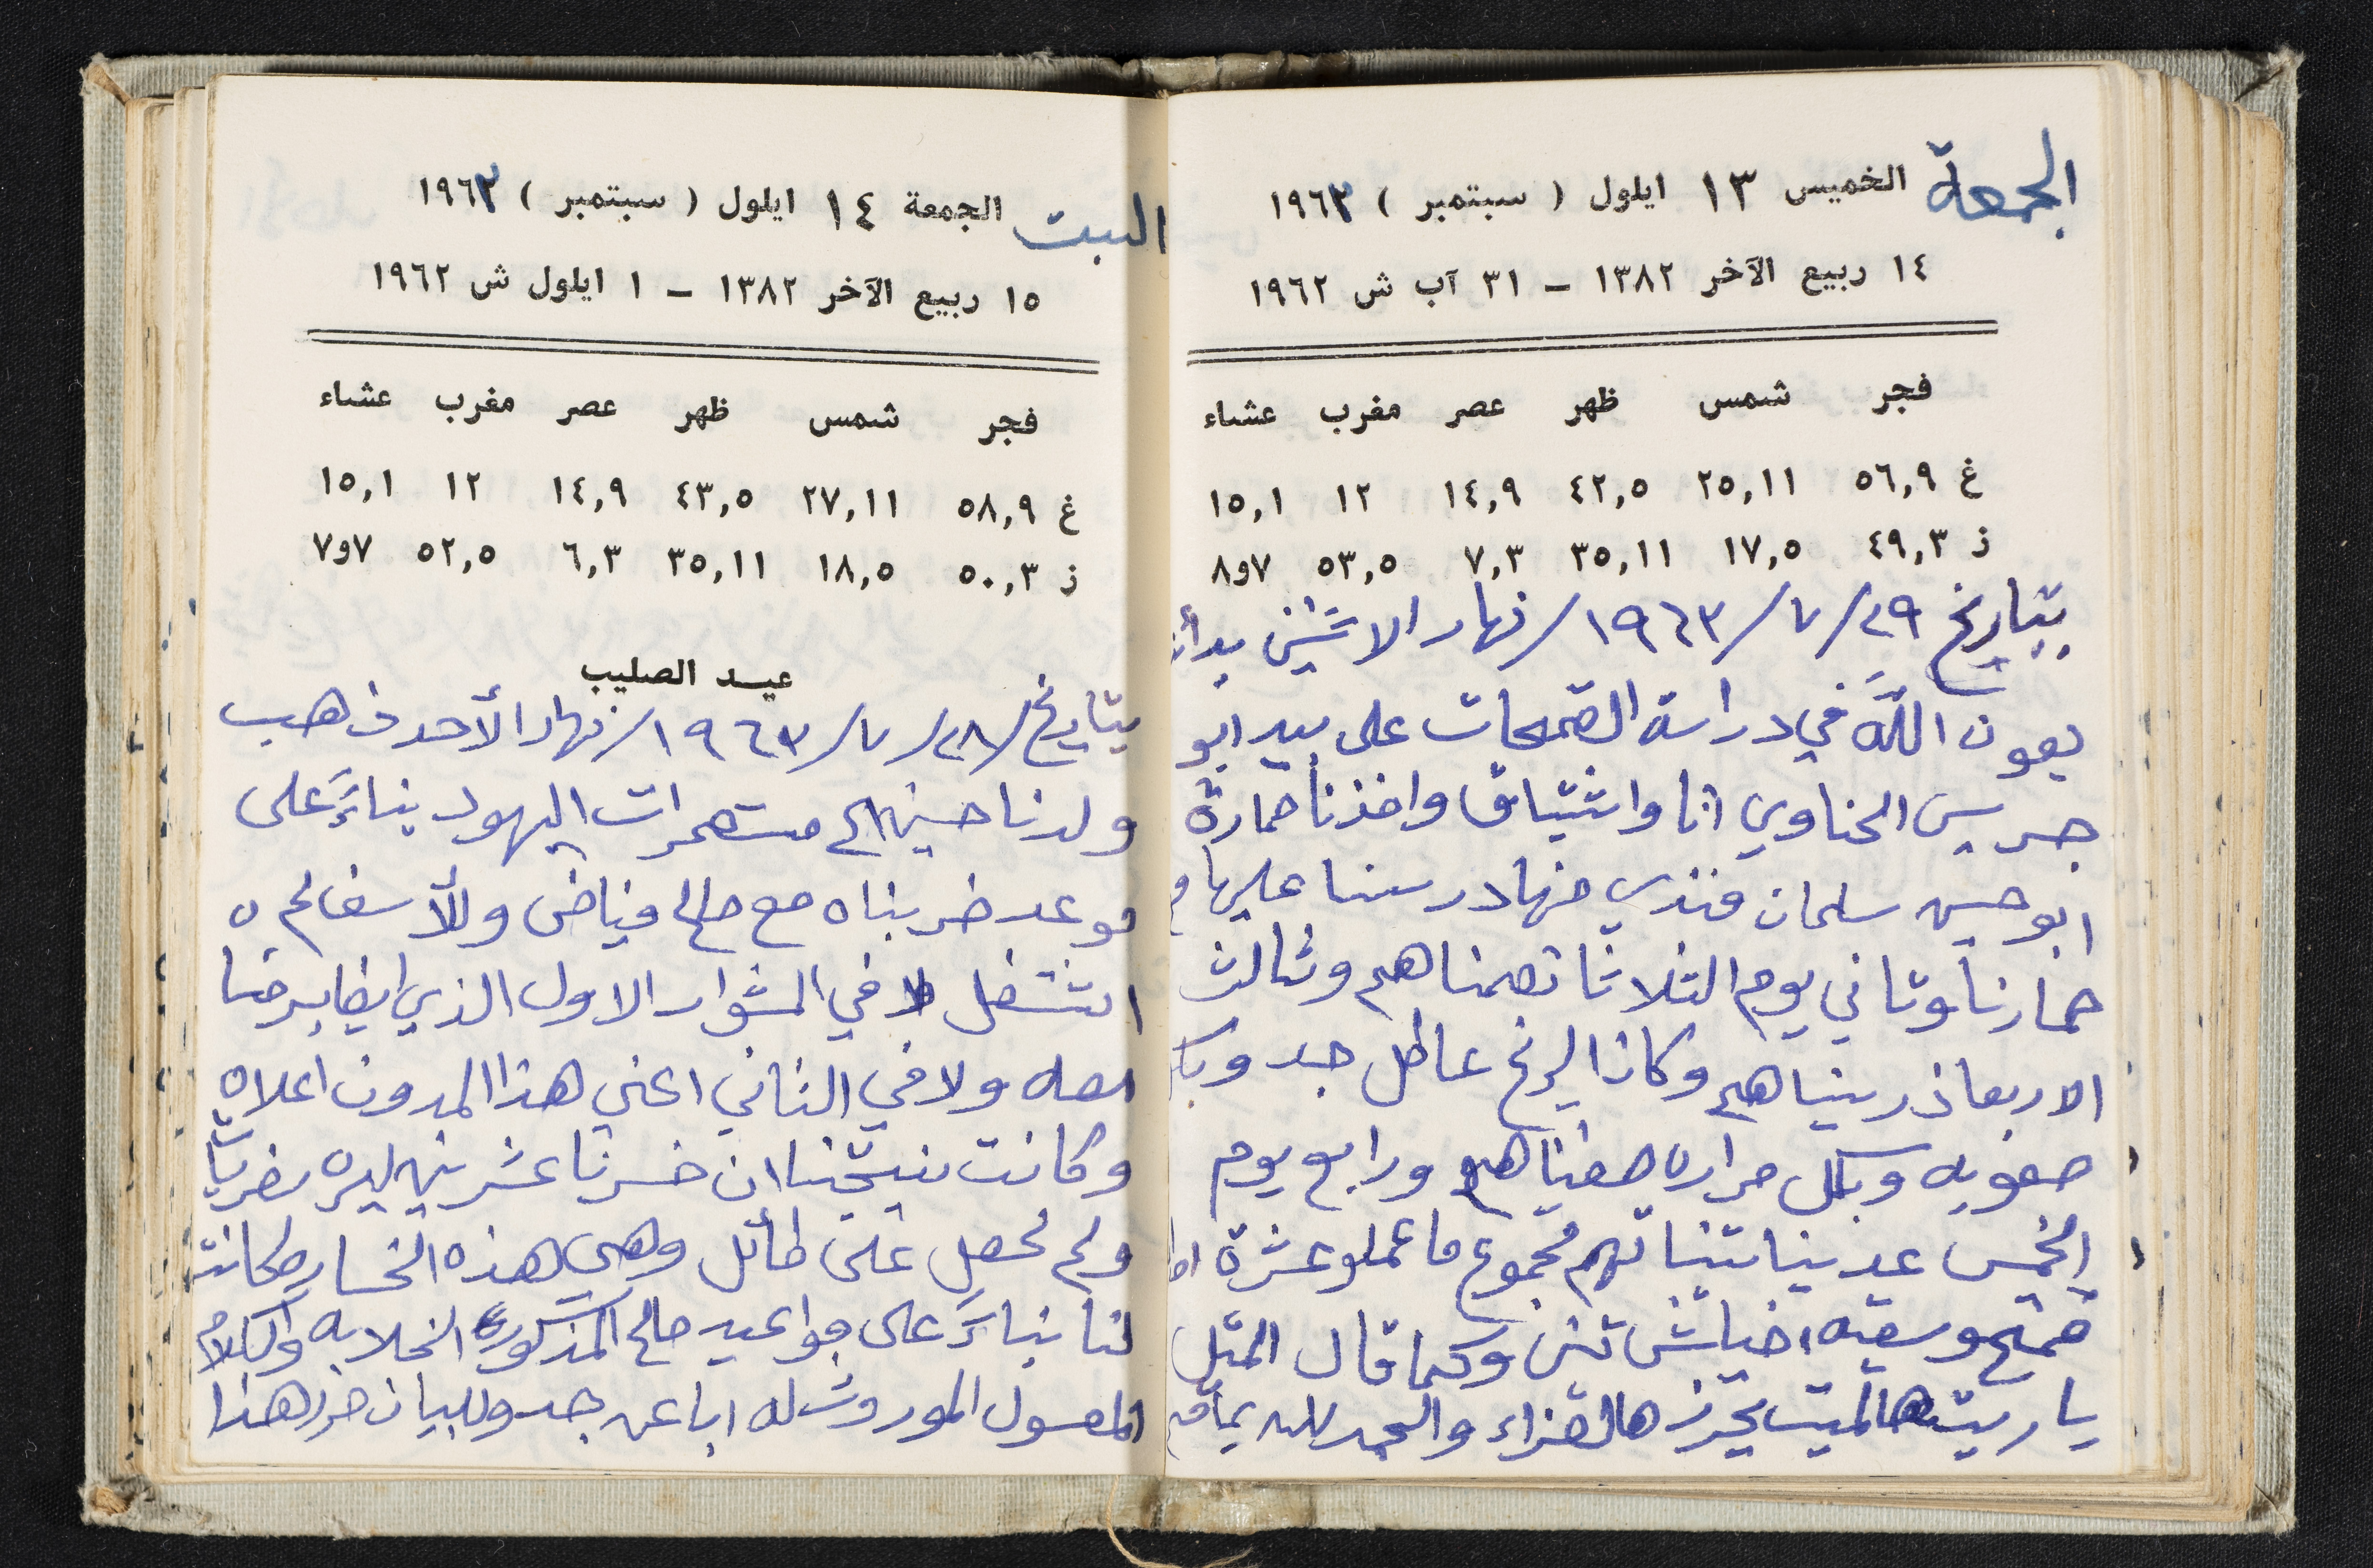 الجمعة
الخميس ١٣ ايلول ( سبتمبر ) ١٩٦٣
١٤ ربيع الآخر ١٣٨٢ – ٣١ آب ش ١٩٦٢
فجر شمس ظهر عصر مغرب عشاء
غ ٥٦,٩ ٢٥,١١ ٤٢,٥ ١٤,٩ ١٢ ١٥,١
ز ٤٩,٣ ١٧,٥ ٣٥,١١ ٧,٣ ٥٣,٥ ٧و٨
بتاريخ ٢٩/٧/١٩٦٣/ نهار الاثنين بدأنا
بعون اللّه في دراسة القمحات على بيدر ابو
جريس الحناوي انا واشتياق واخذنا حمارة
ابو حسين سلمان فندي منها درسنا عليها و
حمارنا وتاني يوم الثلاثا تممناهم وثالث
الاربعا ذريناهم وكان الريح عاطل جد وبكل
صعوبه وبكل مراره صفيناهم ورابع يوم
الخميس عدينا تبناتهم مجموع ما عملو عشرة امداد
قمح وسته اخياش تبن وكما قال المثل
يا ريت هالميت يحرز هالعزاء والحمد لله
السبت
الجمعة ١٤ ايلول ( سبتمبر ) ١٩٦٣
١٥ ربيع الآخر ١٣٨٢ – ١ ايلول ش ١٩٦٢
فجر شمس ظهر عصر مغرب عشاء
غ ٥٨,٩ ٢٧,١١ ٤٣,٥ ١٤,٩ ١٢ ١٥,١
ز ٥٠,٣ ١٨,٥ ٣٥,١١ ٦,٣ ٥٢,٥ ٧و٧
عيـد الصليب
بتاريخ/٢٨/٧/١٩٦٣/ نهار الأحد ذهب
ولدنا حسين الى مستعمرات اليهود بناءً على
موعد ضربناه مع صالح فياض وللأسف لم
اشتغل لا في المشوار الاول الذي ايضا برضا
معه ولا في الثاني اعني هذا المدون اعلاه
وكانت نتيجتنا ان خسرنا عشرين ليره تقريبا
ولم نحصل على طائل وهي هذه الخساره كانت
لنا بناءً على مواعيد صالح المذكوره الخلابه والكلام
المعسول الموروث له ابا عن جد وللبيان حرر هذا